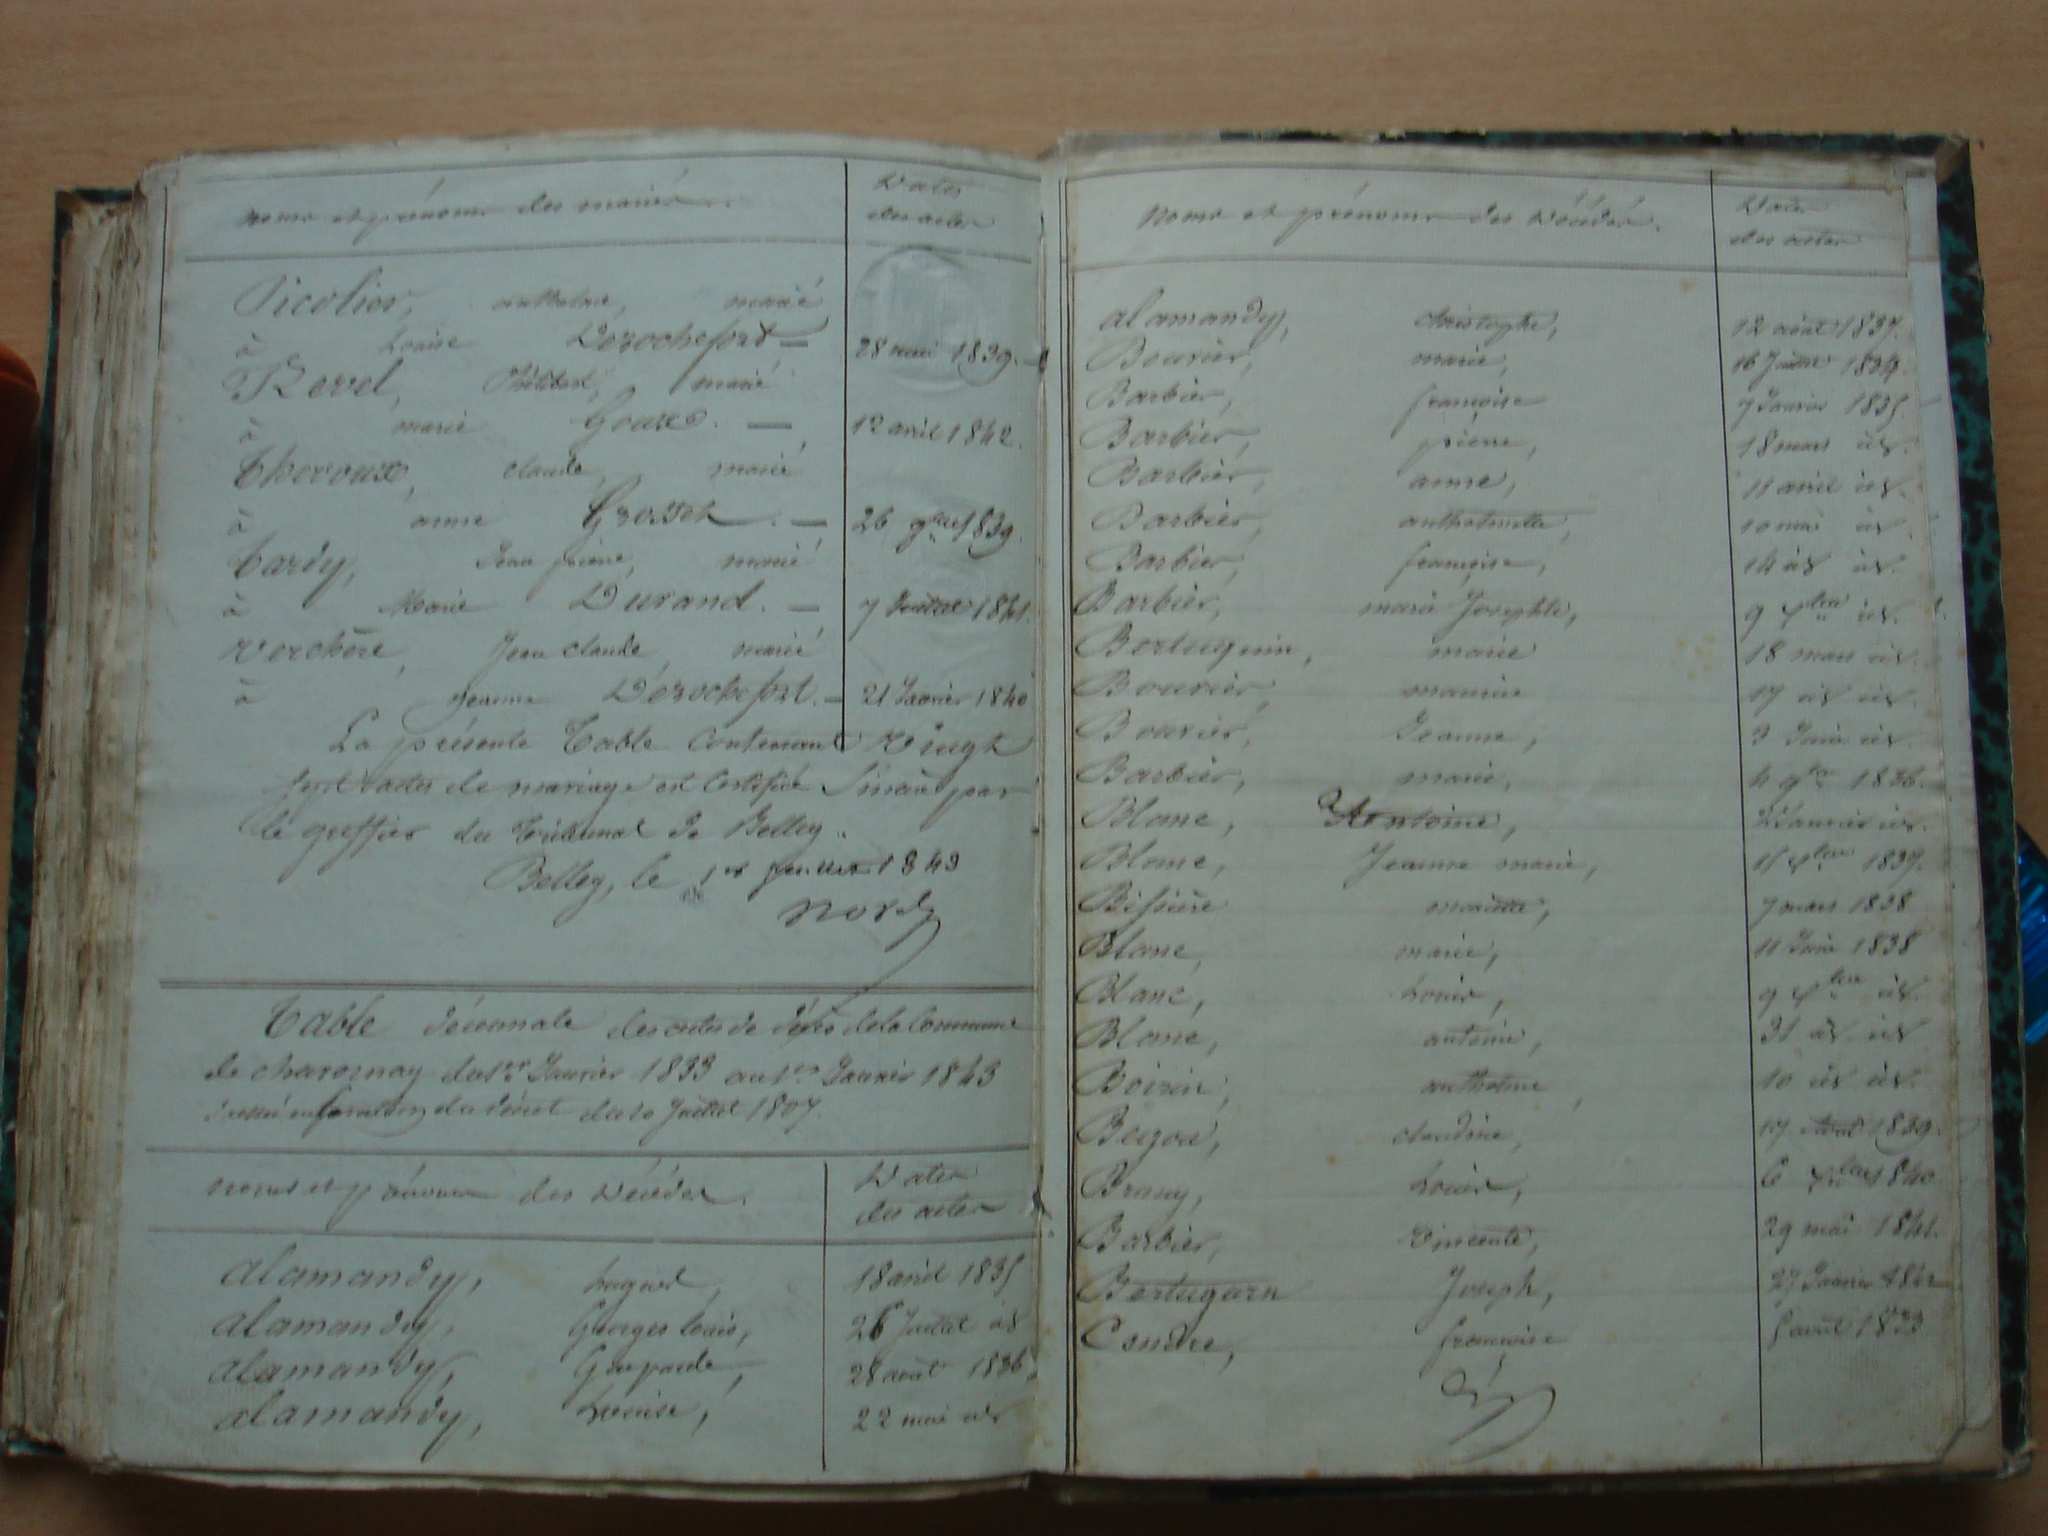 noms et prénoms des mariés. Dates
des actes
Picolier, anthelme, marié
à Louise Derochefort — 28 mai 1839.
Revel, Philibert, marié
à marie Goux. — 12 avril 1842.
Theroux, claude, marié
à anne Grosset. — 26 9bre 1839.
Tardy, Jean pierre, marié
à Marie Durand. — 7 Juillet 1841.
Verchère, Jean claude, marié
à jeanne Derochefort. — 21 Janvier 1840
La présente Table Contenant vingt
sept actes de mariage est Certifiée Sincère par
le greffier du Tribunal de Belley.
Belley, le 1er 1843
Table décennale des actes de décès de la Commune
de du 1er Janvier 1833 au 1er Janvier 1843
dressée en du décret du 20 Juillet 1807.
noms et prénoms des Décédés. Dates
des actes
alamandy, hugues, 18 avril 1835
alamandy, Georges louis, 26 Juillet id
alamandy, Gasparde, 28 août 1836
alamandy, Louise, 22 mai id
noms et prénoms des Décédés. Dates
des actes
alamandy, christophe, 12 août 1837.
Bouvier, marie, 16 Juillet 1834.
Barbier, françoise 7 Janvier 1835.
Barbier, pierre, 18 mars id.
Barbier, anne, 11 avril id.
Barbier, anthelmette, 10 mai id.
Barbier, françoise, 14 id id.
Barbier, marie Josephte, 9 id.
marie 18 mars id.
Bouvier, 17 id id.
Bouvier, Jeanne, 3 Juin id.
Barbier, marie, 4 9bre 1836.
Blanc, Antoine, Janvier id.
Blanc, Jeanne marie, 1837.
mariette, 7 mars 1838
Blanc, marie, 11 Juin 1838
Blanc, Louis, 9 id.
Blanc, antoine, 31 id id
anthelme, 10 id id.
claudine, 17 1839.
Louis, 6 1840
Barbier, Vincente, 29 mai 1841.
Joseph, 27 Janvier 1842
Condre, françoise 5 août 1833